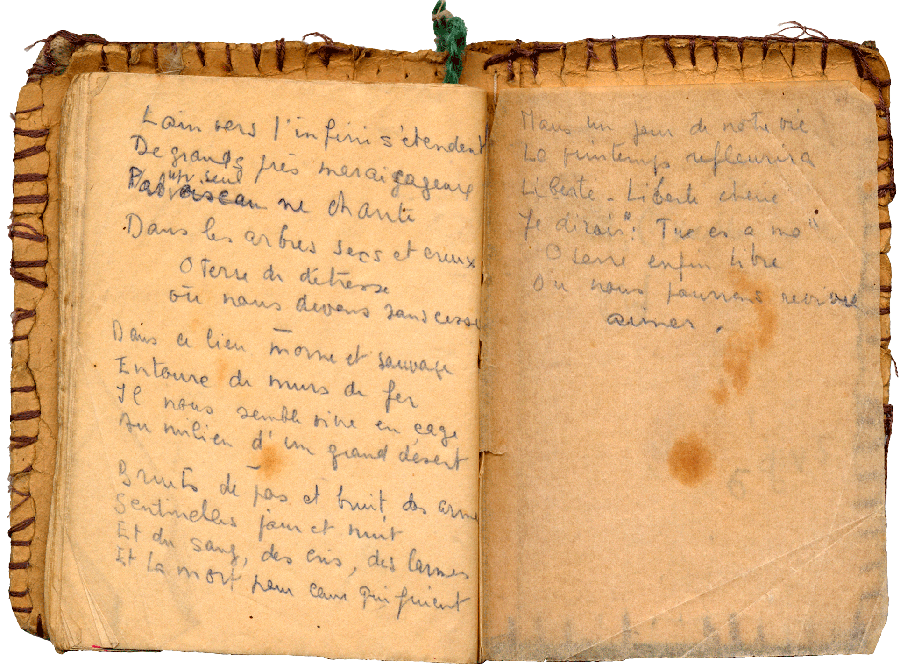 Loin vers l'infini s'étendent
De grands près maraigageux
un seul
Pas oiseau ne chante
Dans les arbres secs et creux
O terre de détresse
où nous devons sans cesse
Dans ce lieu morne et sauvage
Entouré de murs de fer
Il nous semble vivre en cage
Au milieu d'un grand désert
Bruits de pas et bruit des armes
Sentinelles jour et nuit
Et du sang, des cris, des larmes
Et la mort pour celui qui fuient
Mais un jour de notre vie
Le printemps refleurira
Liberté - Liberté chérie
Je dirai : "Tu es a moi"
O terre enfin libre
Où nous pourrons revivre
aimer.